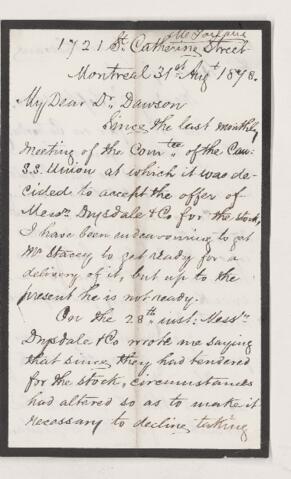 1721 St. Catherine Street
Montreal 31st Augt 1878.
My Dear Dr. Dawson
Since the last monthly
meeting of the Comtee. of the Can:
S.S. Union at which it was de-
cided to accept the offer of
Messrs. Drysdale & Co for the stock,
I have been endeavouring to get
Mr Stacey to get ready for a
delivery of it, but up to the
present he is not ready.
On the 28th. inst: Messrs.
Drysdale & Co wrote me saying
that since they had tendered
for the stock, circumstances
had altered so as to make it
necessary to decline taking